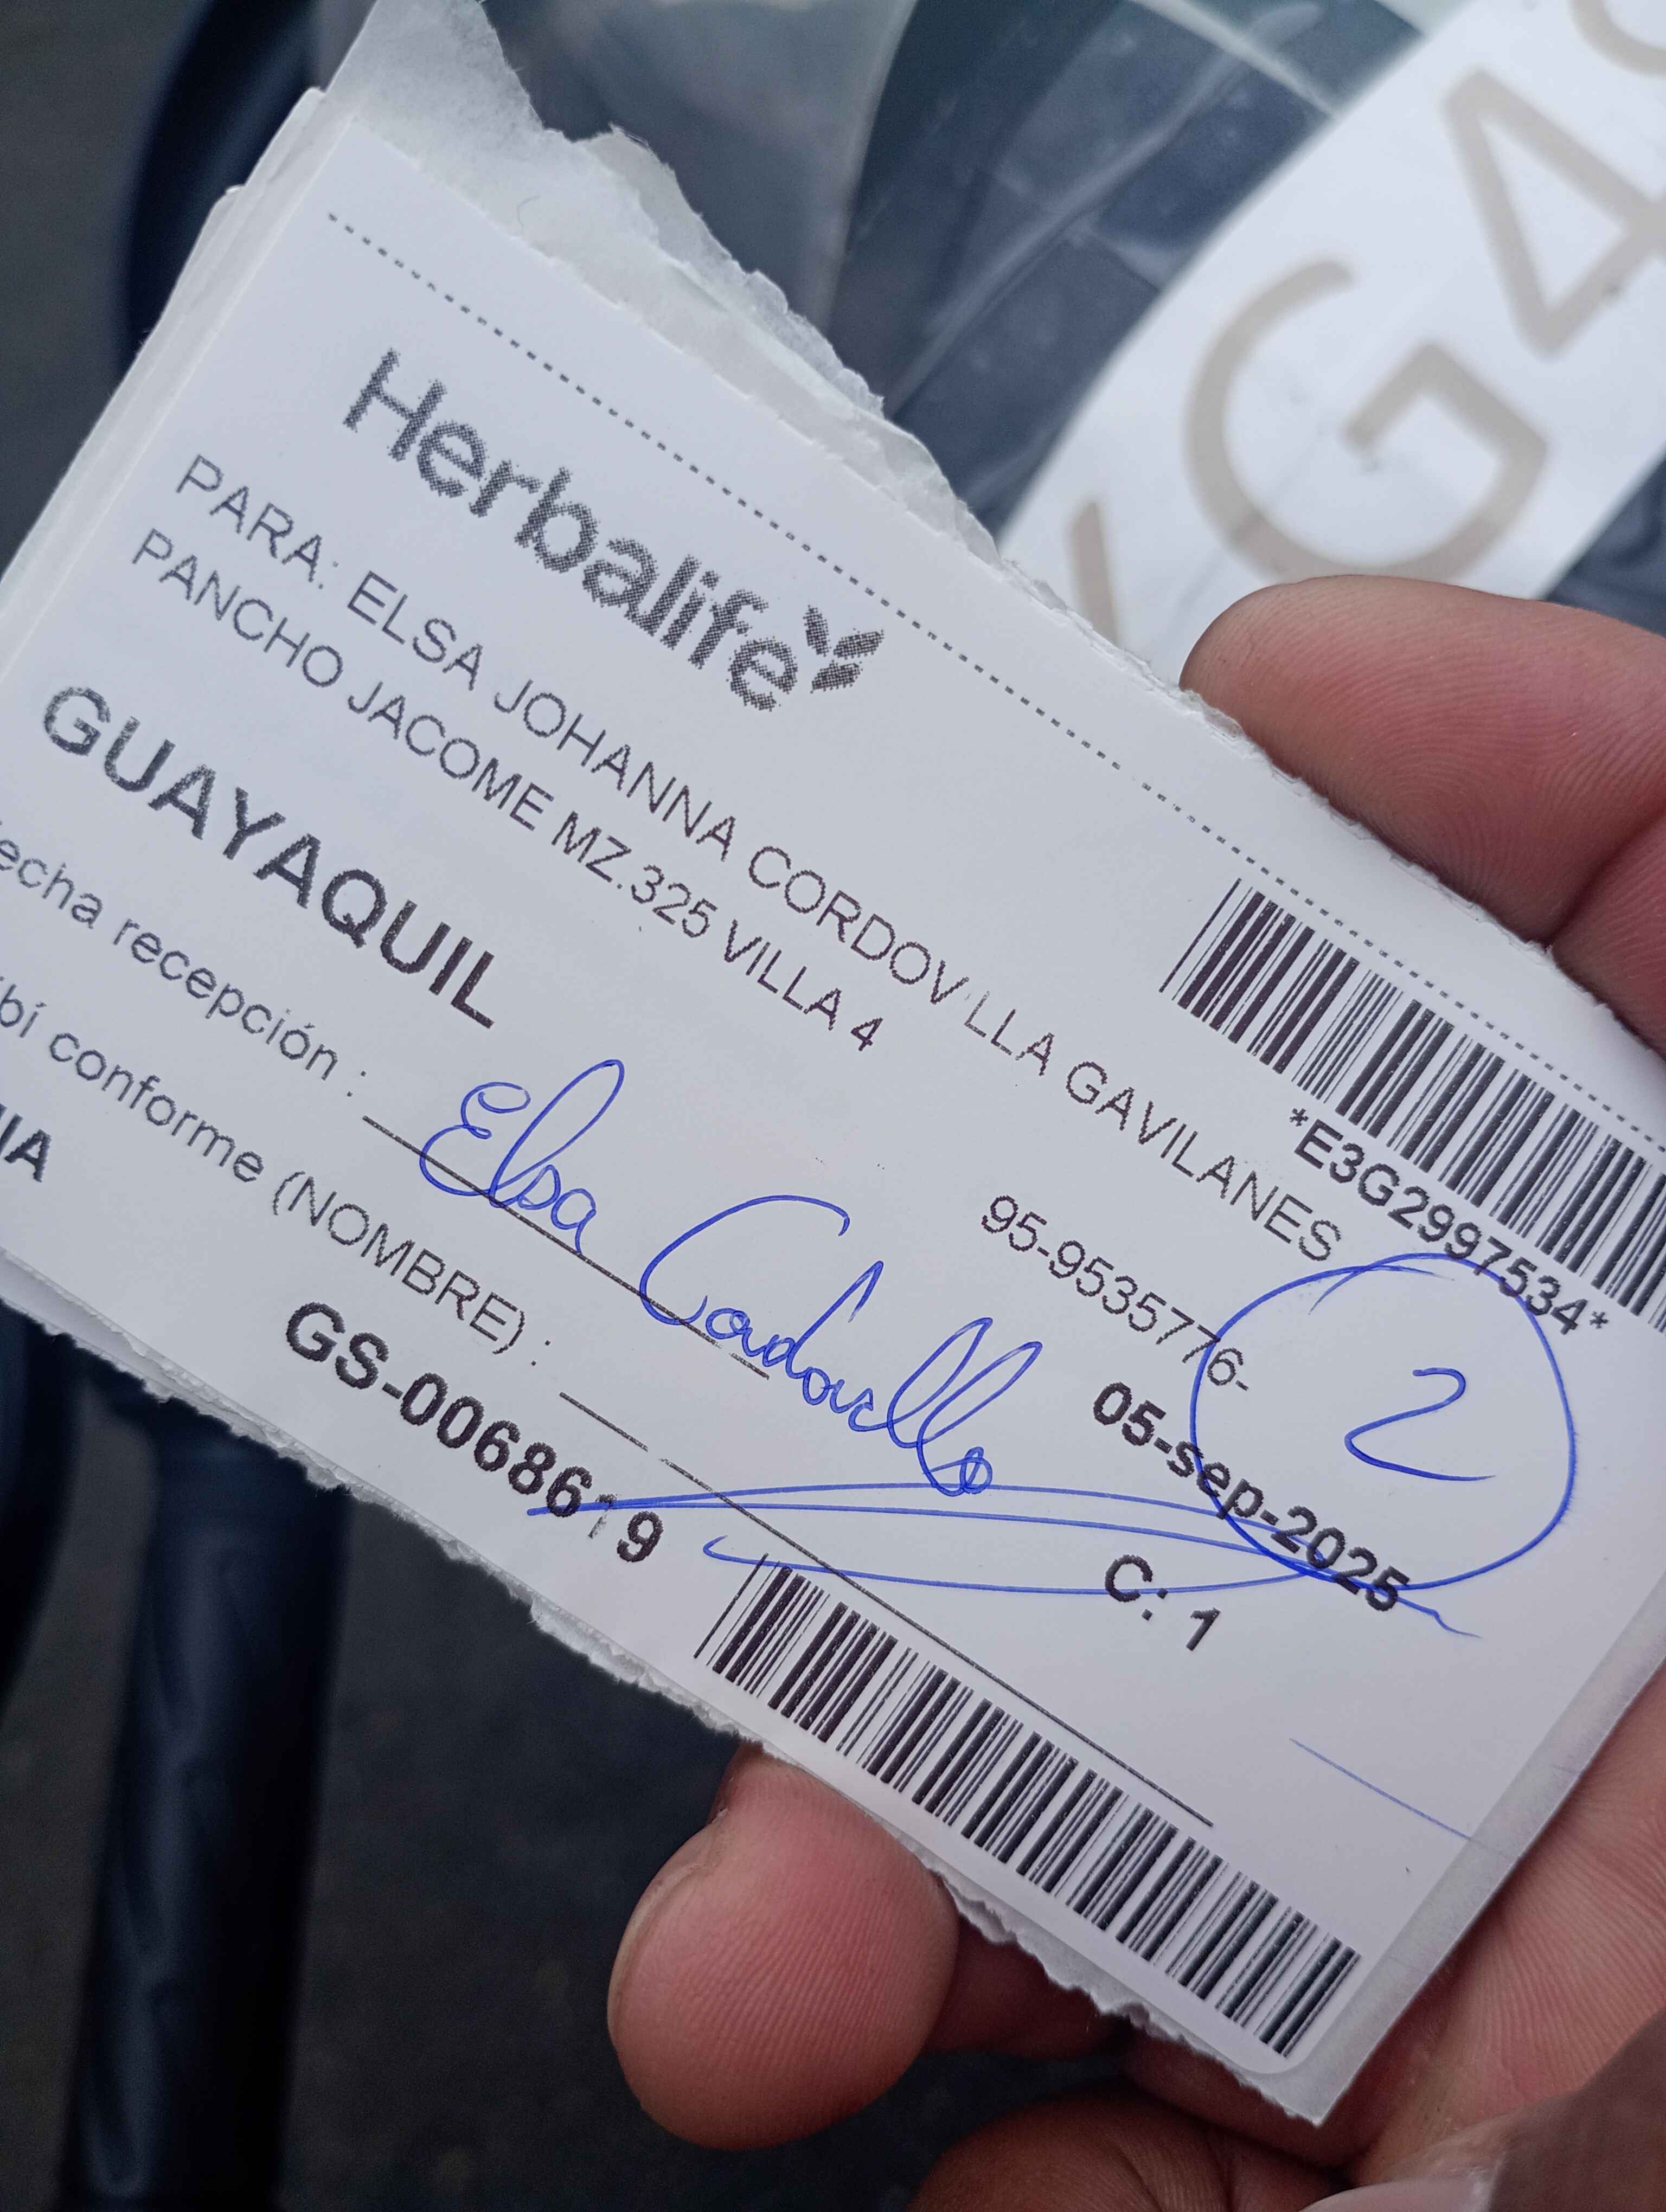 Herbalife
*E3G2997534*
PARA: ELSA JOHANNA CORDOVILLA GAVILANES
PANCHO JACOME MZ.325 VILLA 4
95-9535776-
2
GUAYAQUIL
05-sep-2025
echa recepción :
Elsa Cordovilla
C: 1
bí conforme (NOMBRE) :
GS-0068619
IA
G4